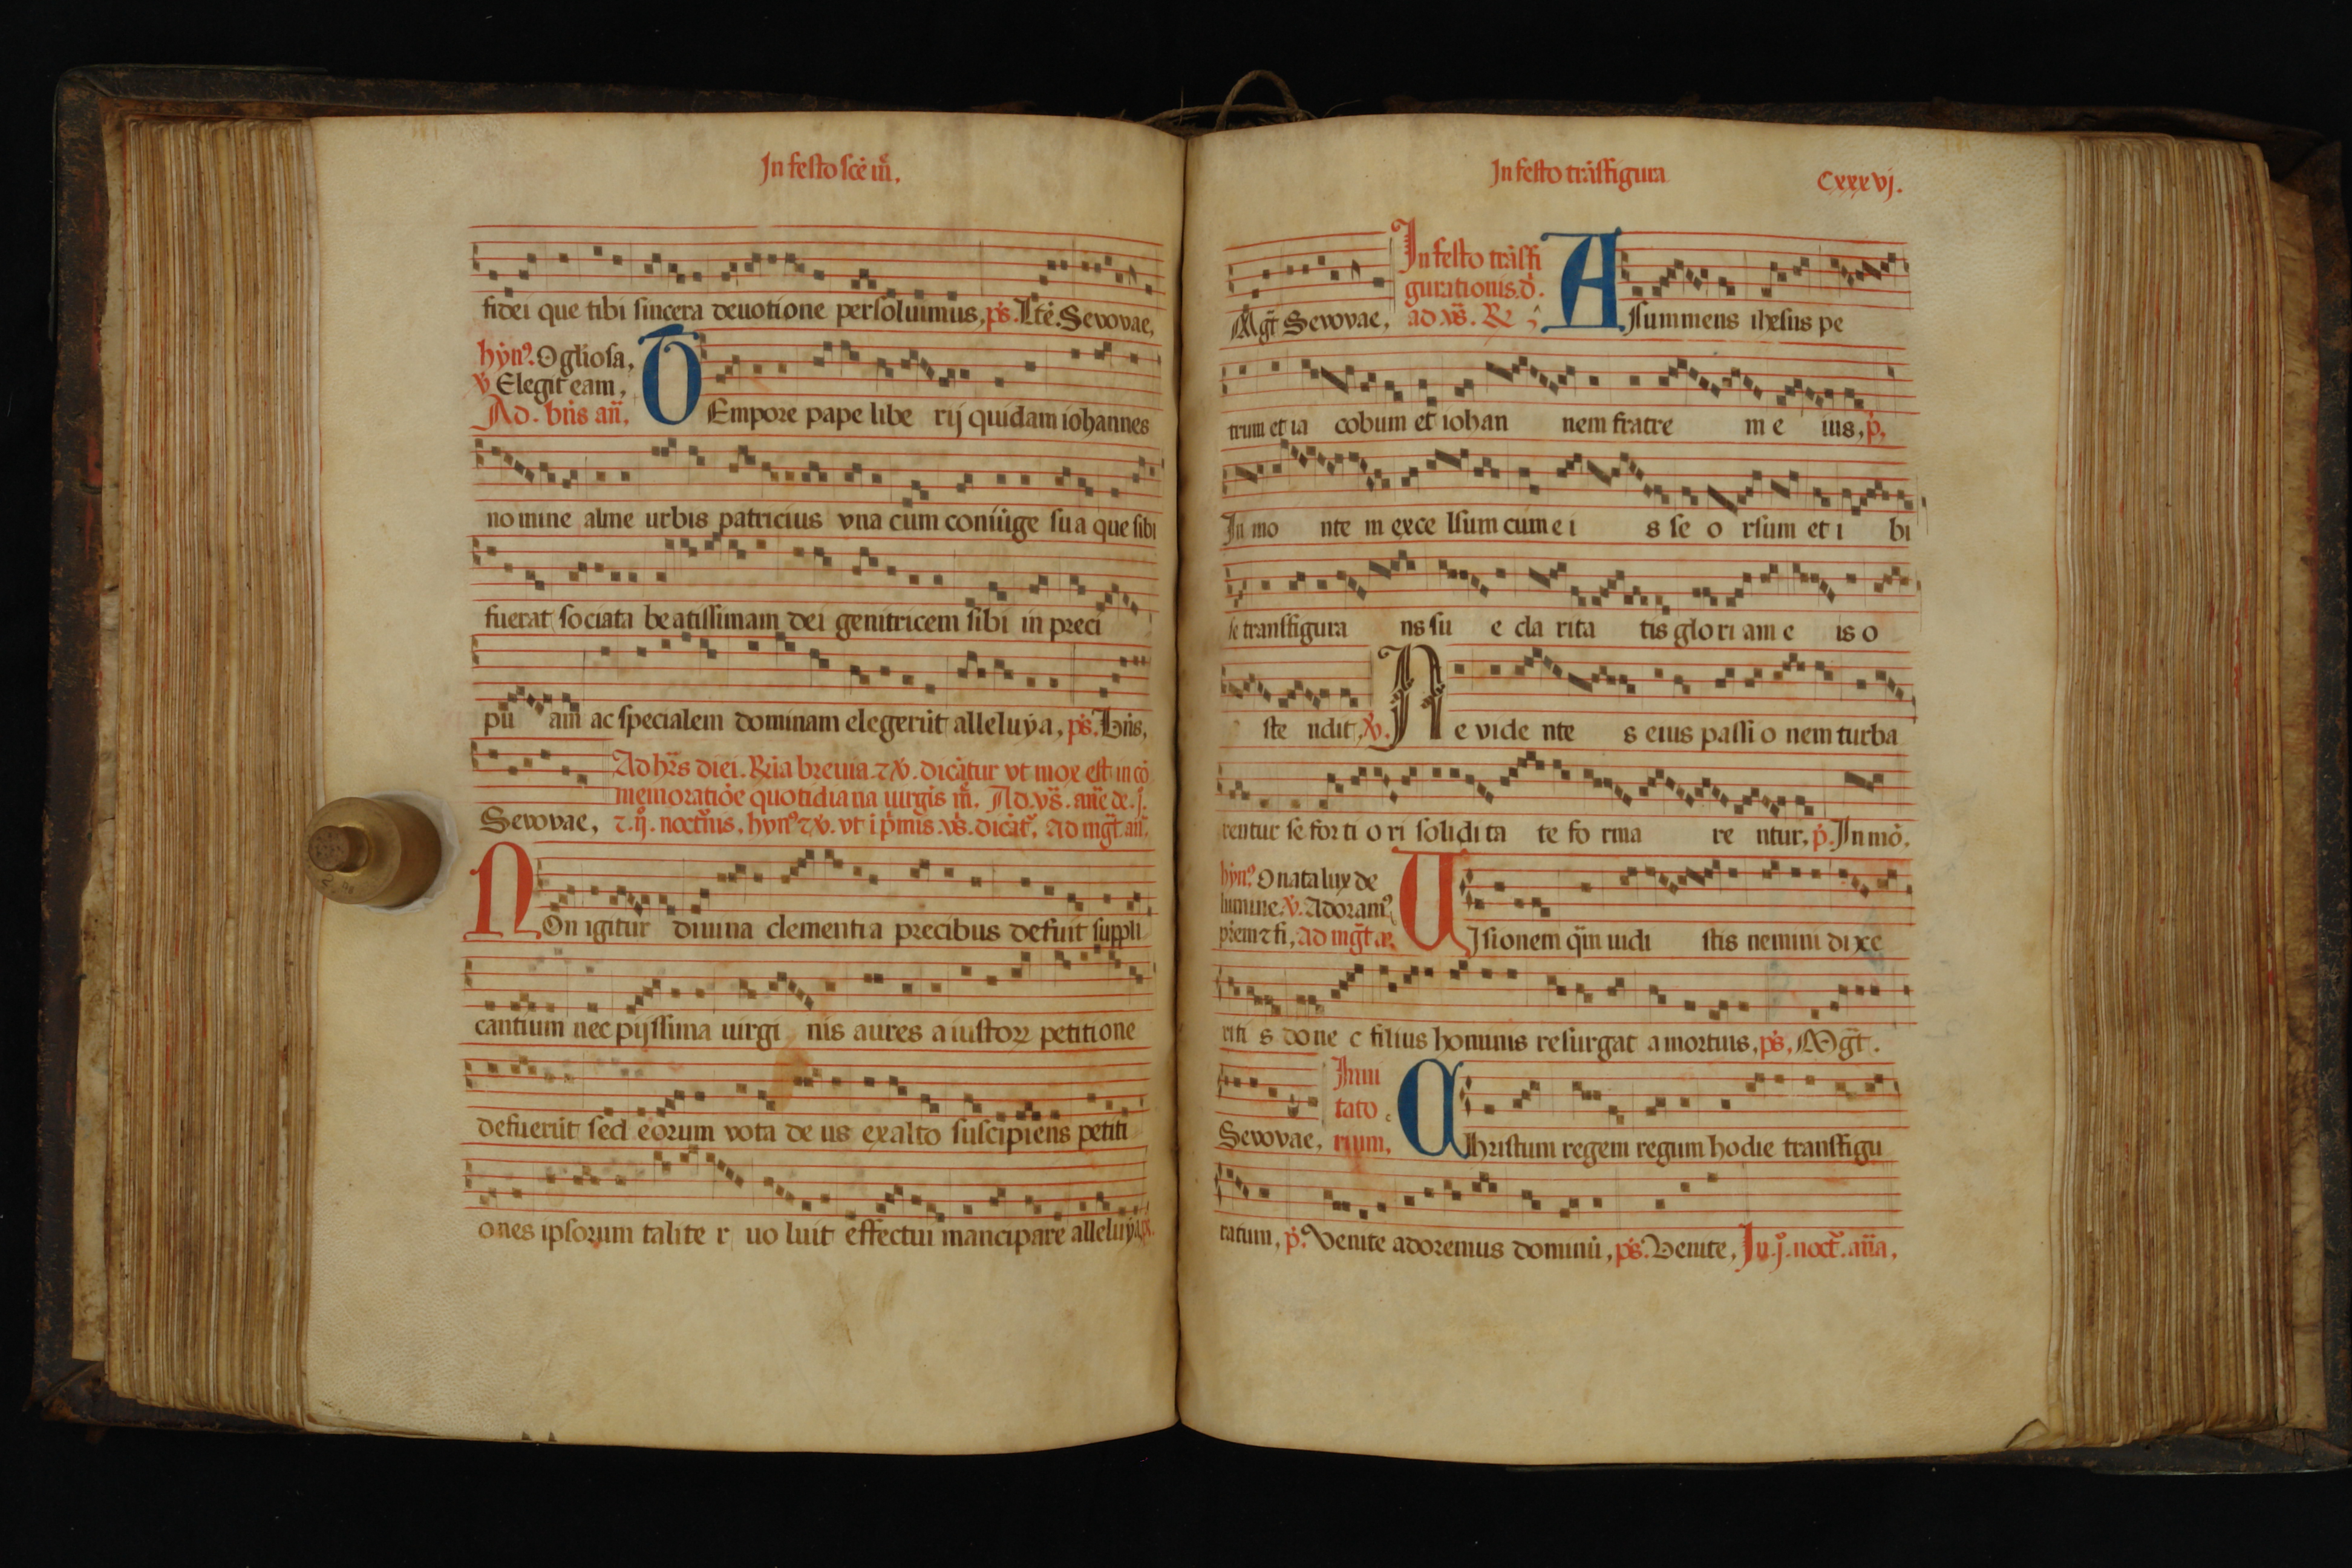 In festo sce m̄.
fidei que tibi sincera deuotione persoluimus, ps. Lte. Sevovae,
hỳn⁹. O gliosa,
v̓ Elegit eam,
Ad. bn̄s an̄,
TEmpore pape libe rij quidam iohannes
nomine alme urbis patricius vna cum coniu̇ge sua que sibi
fuerat sociata beatissimam dei genitricem sibi in preci
pu am ac specialem dominam elegerūt alleluẏa, ps. Bn̄s,
Ad hr̄s diei. Rn̄a breuia ⁊ v̓. dicātur vt mox est in cō
memoratiōe quotidiana uirgīs m̄. Ad. vs̄. an̄e de .j.
Sevovae, ⁊ .ij. noctn̄is, hyn⁹ ⁊ v̓. vt i p̄mīs. vs̄. dicāt᷑, ad mgt̄ an̄,
NOn igitur diuina clementia precibus defuit suppli
cantium nec pijssima uirgi nis aures a iustoꝝ petitione
defuerūt sed eorum vota de us exalto suscipiens petiti
ones ipsorum talite r uo luit effectui mancipare alleluẏa, ps.
In festo trāsfigura
Cxxxvj.
Mgt̄ Sevovae,
In festo trāsfi
gurationis. d̄.
ad. vs̄. R̄
ASsummens ihesus pe
trum et ia cobum et iohan nem fratre m e ius, p̄,
In mo nte m exce lsum cum e i s se o rsum et i bi
se transfigura ns su e cla rita tis glo ri am e is o
ste ndit, v̓. Ne vide nte s eius passi o nem turba
rentur se for ti o ri solidi ta te fo rma re ntur, p̄. In mō,
hyn⁹. O nata lux de
lumine. v̓. Adoram⁹
pr̄em ⁊ fi, ad mgt̄ ā.
UIsionem q̄m uidi stis nemini dixe
riti s done c filius hominis resurgat a mortuis, ps, Mgt̄.
Sevovae,
Inui
tato
rium,
CHristum regem regum hodie transfigu
ratum, p̄. Venite adoremus dominū, ps. Venite, In .j⁰. noct᷑. an̄a,